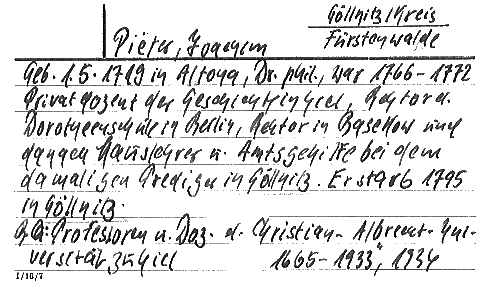 Göllnitz/Kreis
Fürstenwalde
Pieter, Joachim
Geb. 1.5. 1719 in Altona, Dr. phil., war 1766-1772
Privatdozent der Geschichte in Kiel, Rektor d.
Dorotheenschule in Berlin, Rektor in Basekow und
danach Hauslehrer u. Amtsgehilfe bei dem
damaligen Prediger in Göllnitz. Er starb 1795
in Göllnitz.
Professoren u. Doz. d. Christian-Albrecht-Uni-
versität zu Kiel 1665-1933", 1934
I/16/7